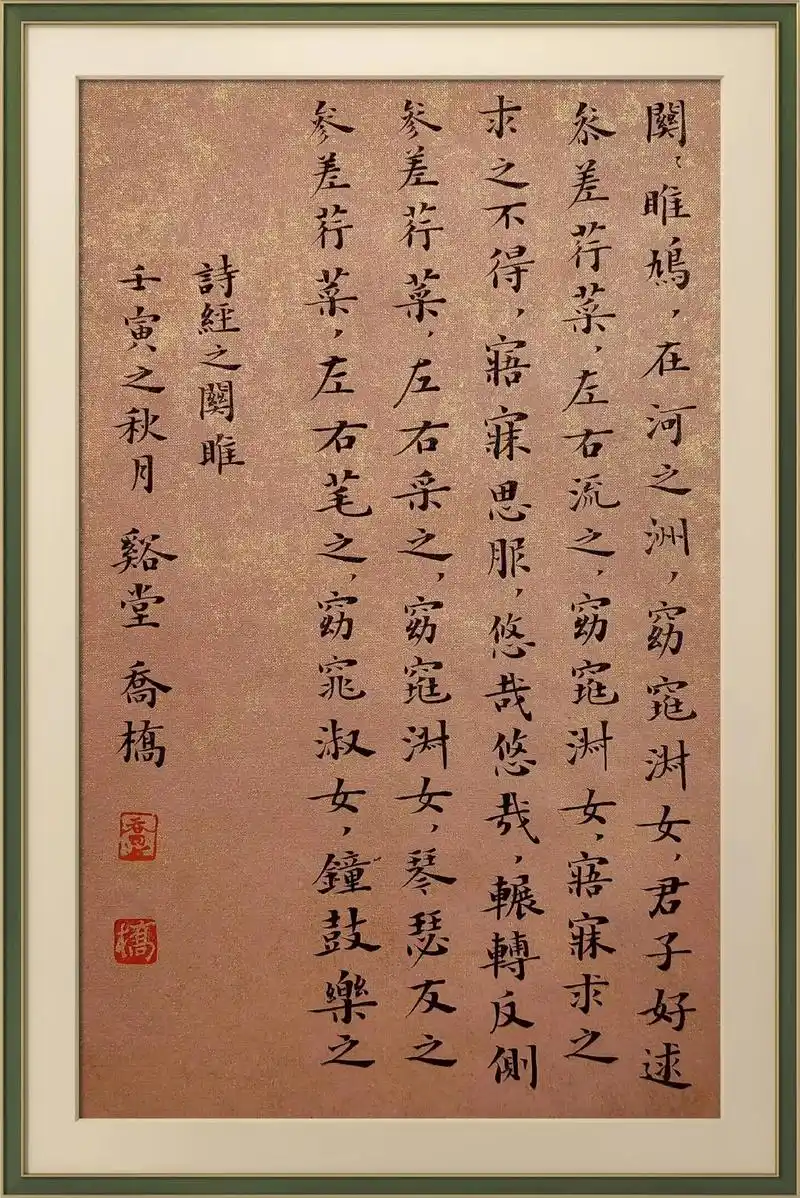 關〻雎鳩，在河之洲，窈窕淑女，君子好逑
參差荇菜，左右流之，窈窕淑女，寤寐求之
求之不得，寤寐思服，悠哉悠哉，輾轉反側
參差荇菜，左右采之，窈窕淑女，琴瑟友之
參差荇菜，左右芼之，窈窕淑女，鐘鼓樂之
詩經之關雎
壬寅之秋月 谿堂 喬橋
喬
橋